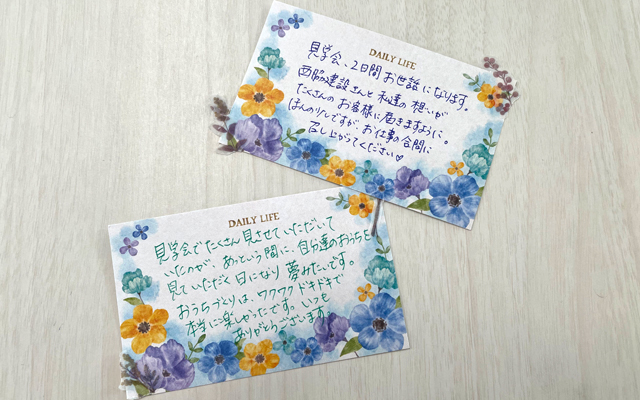 DAILY LIFE
見学会、2日間お世話になります。
西脇建設さんと私達の想いが
たくさんのお客様に届きますように。
ほんの少しですが、お仕事の合間に
召し上がってください♡
DAILY LIFE
見学会でたくさん見させていただいて
いたのが、あっという間に、自分達のおうちを
見ていただく日になり夢みたいです。
おうちづくりは、ワクワクドキドキで
本当に楽しかったです。いつも
ありがとうございます。